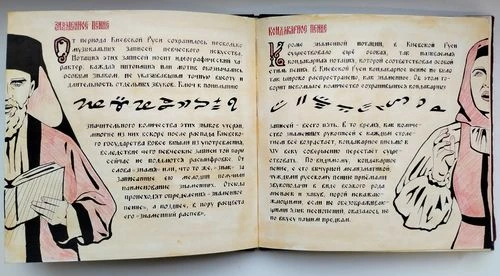 Знаменное пение
От периода Киевской Руси сохранилось несколько
музыкальных записей певческого искусства.
Нотация этих записей носит идеографический ха-
рактер, каждая интонация или мотив обозначались
особым знаком, не указывающим точную высоту и
длительность отдельных звуков. Ключ к пониманию
значительного количества этих знаков утерян,
многие из них вскоре после распада Киевско-
го государства вовсе вышли из употребления,
вследствие чего певческие записи той поры
сейчас не поддаются расшифровке. От
слова «знамя» или, что то же, «знак» за
записанной ею мелодий получили
наименование знаменных. Отсюда
происходит определение «знаменное
пение», а позднее, в пору расцвета
его «знаменный распев».
Кондакарное пение
Кроме знаменной нотации, в Киевской Руси
существовало ещё особая, так называемая
кондакарная нотация, которой соответствовал особый
стиль пения. В Киевской Руси кондакарное пение не было
так широко распространено, как знаменное. Об этом го-
ворит небольшое количество сохранившихся кондакарных
записей - всего пять. В то время, как количе-
ство знаменных рукописей с каждым столе-
тием всё возрастает, кондакарное письмо в
XIV веку совершенно перестаёт суще-
ствовать. По-видимому, кондакарное
пение, с его вычурной мелизматикой,
чуждыми русскому пению приёмами
звукоподачи в виде всякого рода
мененаев и хабув, порой невыжива-
ющими, если не обезображиваю-
щими язык песнопений, оказалось не
по вкусу нашим предкам.